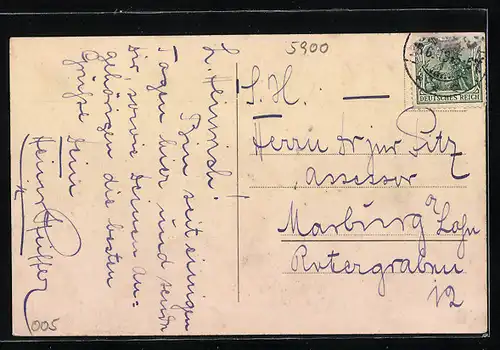 L. Heinrich!
Bin seit einigen
Tagen hier und sende
Dir, sowie Deinen An-
gehörigen die besten
Grüße
Dein
Heinr.
5900
S. H.
Herrn Dr jur Pitz
Assessor
Marburg a/Lahn
Rotergraben
12
DEUTSCHES REICH
005